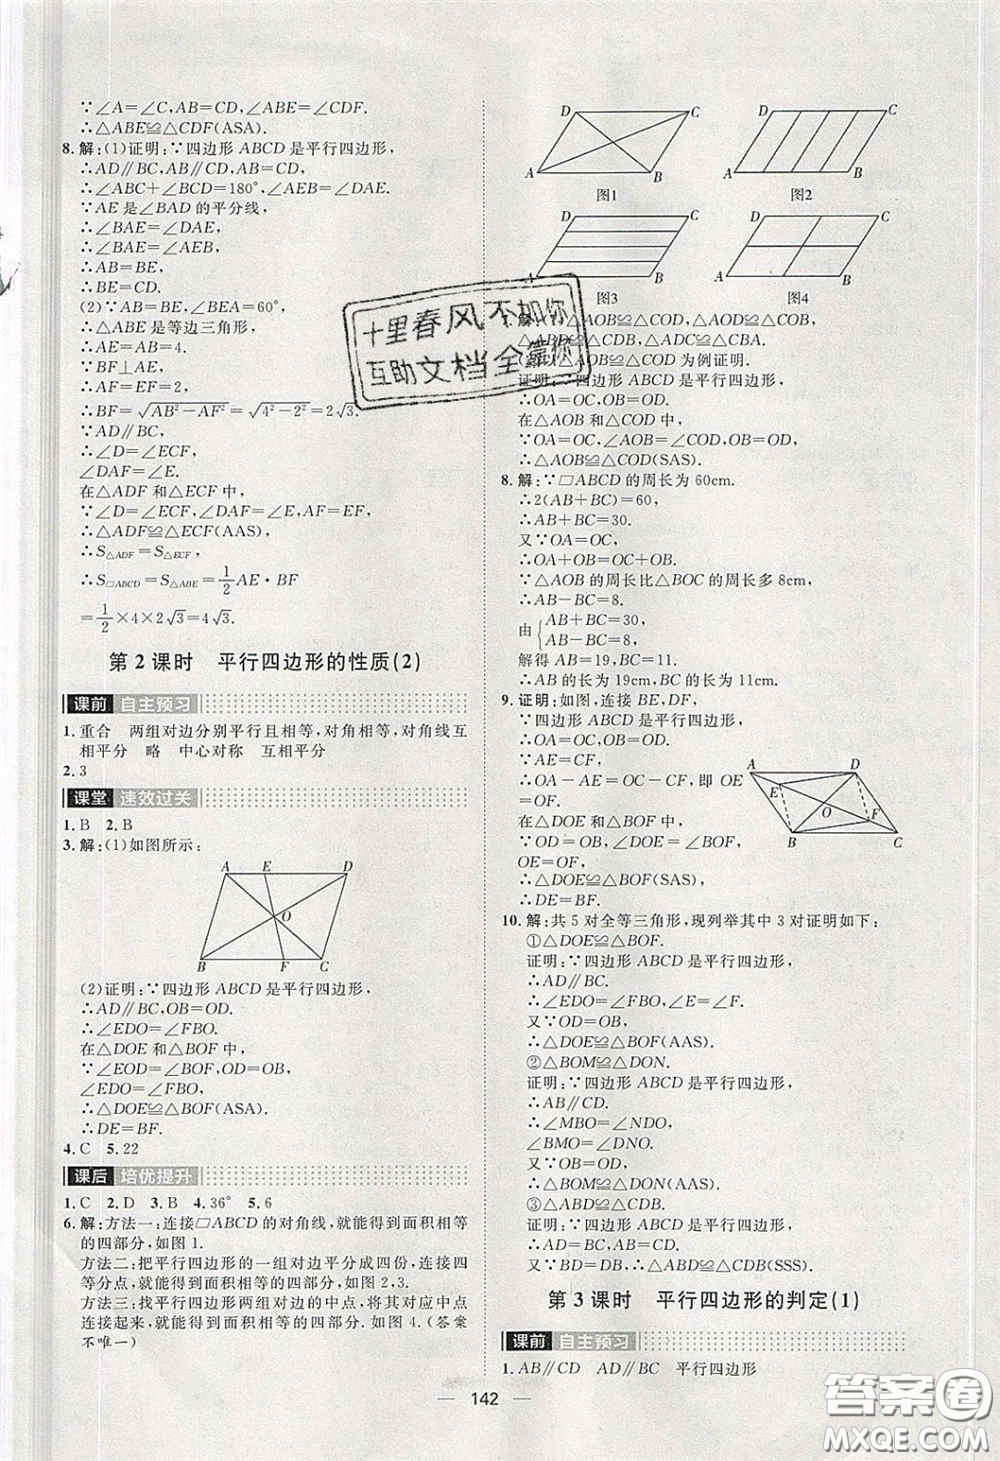 ∵∠A=∠C,AB=CD,∠ABE=∠CDF.
∴△ABE≌△CDF(ASA).
8.解:(1)证明:∵四边形ABCD是平行四边形,
∴AD∥BC,AB∥CD,AB=CD,
∴∠ABC+∠BCD=180°,∠AEB=∠DAE.
∵AE是∠BAD的平分线,
∴∠BAE=∠DAE,
∴∠BAE=∠AEB,
∴AB=BE,
∴BE=CD.
(2)∵AB=BE,∠BEA=60°,
∴△ABE是等边三角形,
∴AE=AB=4.
∵BF⊥AE,
∴AF=EF=2,
∴BF=√(AB²-AF²)=√(4²-2²)=2√3.
∵AD∥BC,
∴∠D=∠ECF,
∠DAF=∠E.
在△ADF和△ECF中,
∵∠D=∠ECF,∠DAF=∠E,AF=EF,
∴△ADF≌△ECF(AAS),
∴S△ADF=S△ECF,
∴S▱ABCD=S△ABE=1/2 AE·BF
=1/2×4×2√3=4√3.
第2课时 平行四边形的性质(2)
课前 自主预习
1.重合 两组对边分别平行且相等,对角相等,对角线互
相平分 略 中心对称 互相平分
2.3
课堂 速效过关
1.B 2.B
3.解:(1)如图所示:
A E D
O
B F C
(2)证明:∵四边形ABCD是平行四边形,
∴AD∥BC,OB=OD.
∴∠EDO=∠FBO.
在△DOE和△BOF中,
∵∠EOD=∠BOF,OB=OD,
∠EDO=∠FBO,
∴△DOE≌△BOF(ASA).
∴DE=BF.
4.C 5.22
课后 培优提升
1.C 2.D 3.B 4.36° 5.6
6.解:方法一:连接▱ABCD的对角线,就能得到面积相等
的四部分,如图1.
方法二:把平行四边形的一组对边平分成四份,连接四
等分点,就能得到面积相等的四部分,如图2,3.
方法三:找平行四边形两组对边的中点,将其对应中点
连接起来,就能得到面积相等的四部分.如图4.(答案
不唯一)
D C D C
A B A B
图1 图2
D C D C
A B A B
图3 图4
△AOB≌△COD,△AOD≌△COB,
△ABD≌△CDB,△ADC≌△CBA.
△AOB≌△COD为例证明.
证明:∵四边形ABCD是平行四边形,
∴OA=OC,OB=OD.
在△AOB和△COD中,
∵OA=OC,∠AOB=∠COD,OB=OD,
∴△AOB≌△COD(SAS).
8.解:∵▱ABCD的周长为60cm.
∴2(AB+BC)=60,
∴AB+BC=30.
又∵OA=OC,
∴OA+OB=OC+OB.
∵△AOB的周长比△BOC的周长多8cm,
∴AB-BC=8.
由{AB+BC=30,
AB-BC=8,
解得AB=19,BC=11.
∴AB的长为19cm,BC的长为11cm.
9.证明:如图,连接BE,DF,
∵四边形ABCD是平行四边形,
∴OA=OC,OB=OD.
∵AE=CF,
∴OA-AE=OC-CF,即OE
=OF.
在△DOE和△BOF中,
∵OD=OB,∠DOE=∠BOF,
OE=OF,
∴△DOE≌△BOF(SAS),
∴DE=BF.
A D
E
O
F
B C
10.解:共5对全等三角形,现列举其中3对证明如下:
①△DOE≌△BOF.
证明:∵四边形ABCD是平行四边形,
∴AD∥BC.
∴∠EDO=∠FBO,∠E=∠F.
又∵OD=OB,
∴△DOE≌△BOF(AAS).
②△BOM≌△DON.
证明:∵四边形ABCD是平行四边形,
∴AB∥CD.
∴∠MBO=∠NDO,
∠BMO=∠DNO.
又∵BO=DO,
∴△BOM≌△DON(AAS).
③△ABD≌△CDB.
证明:∵四边形ABCD是平行四边形,
∴AD=CB,AB=CD.
又∵BD=DB,∴△ABD≌△CDB(SSS).
第3课时 平行四边形的判定(1)
课前 自主预习
1.AB∥CD AD∥BC 平行四边形
142
十里春风不如你
互助文档全靠你
答案卷
MXQE.COM